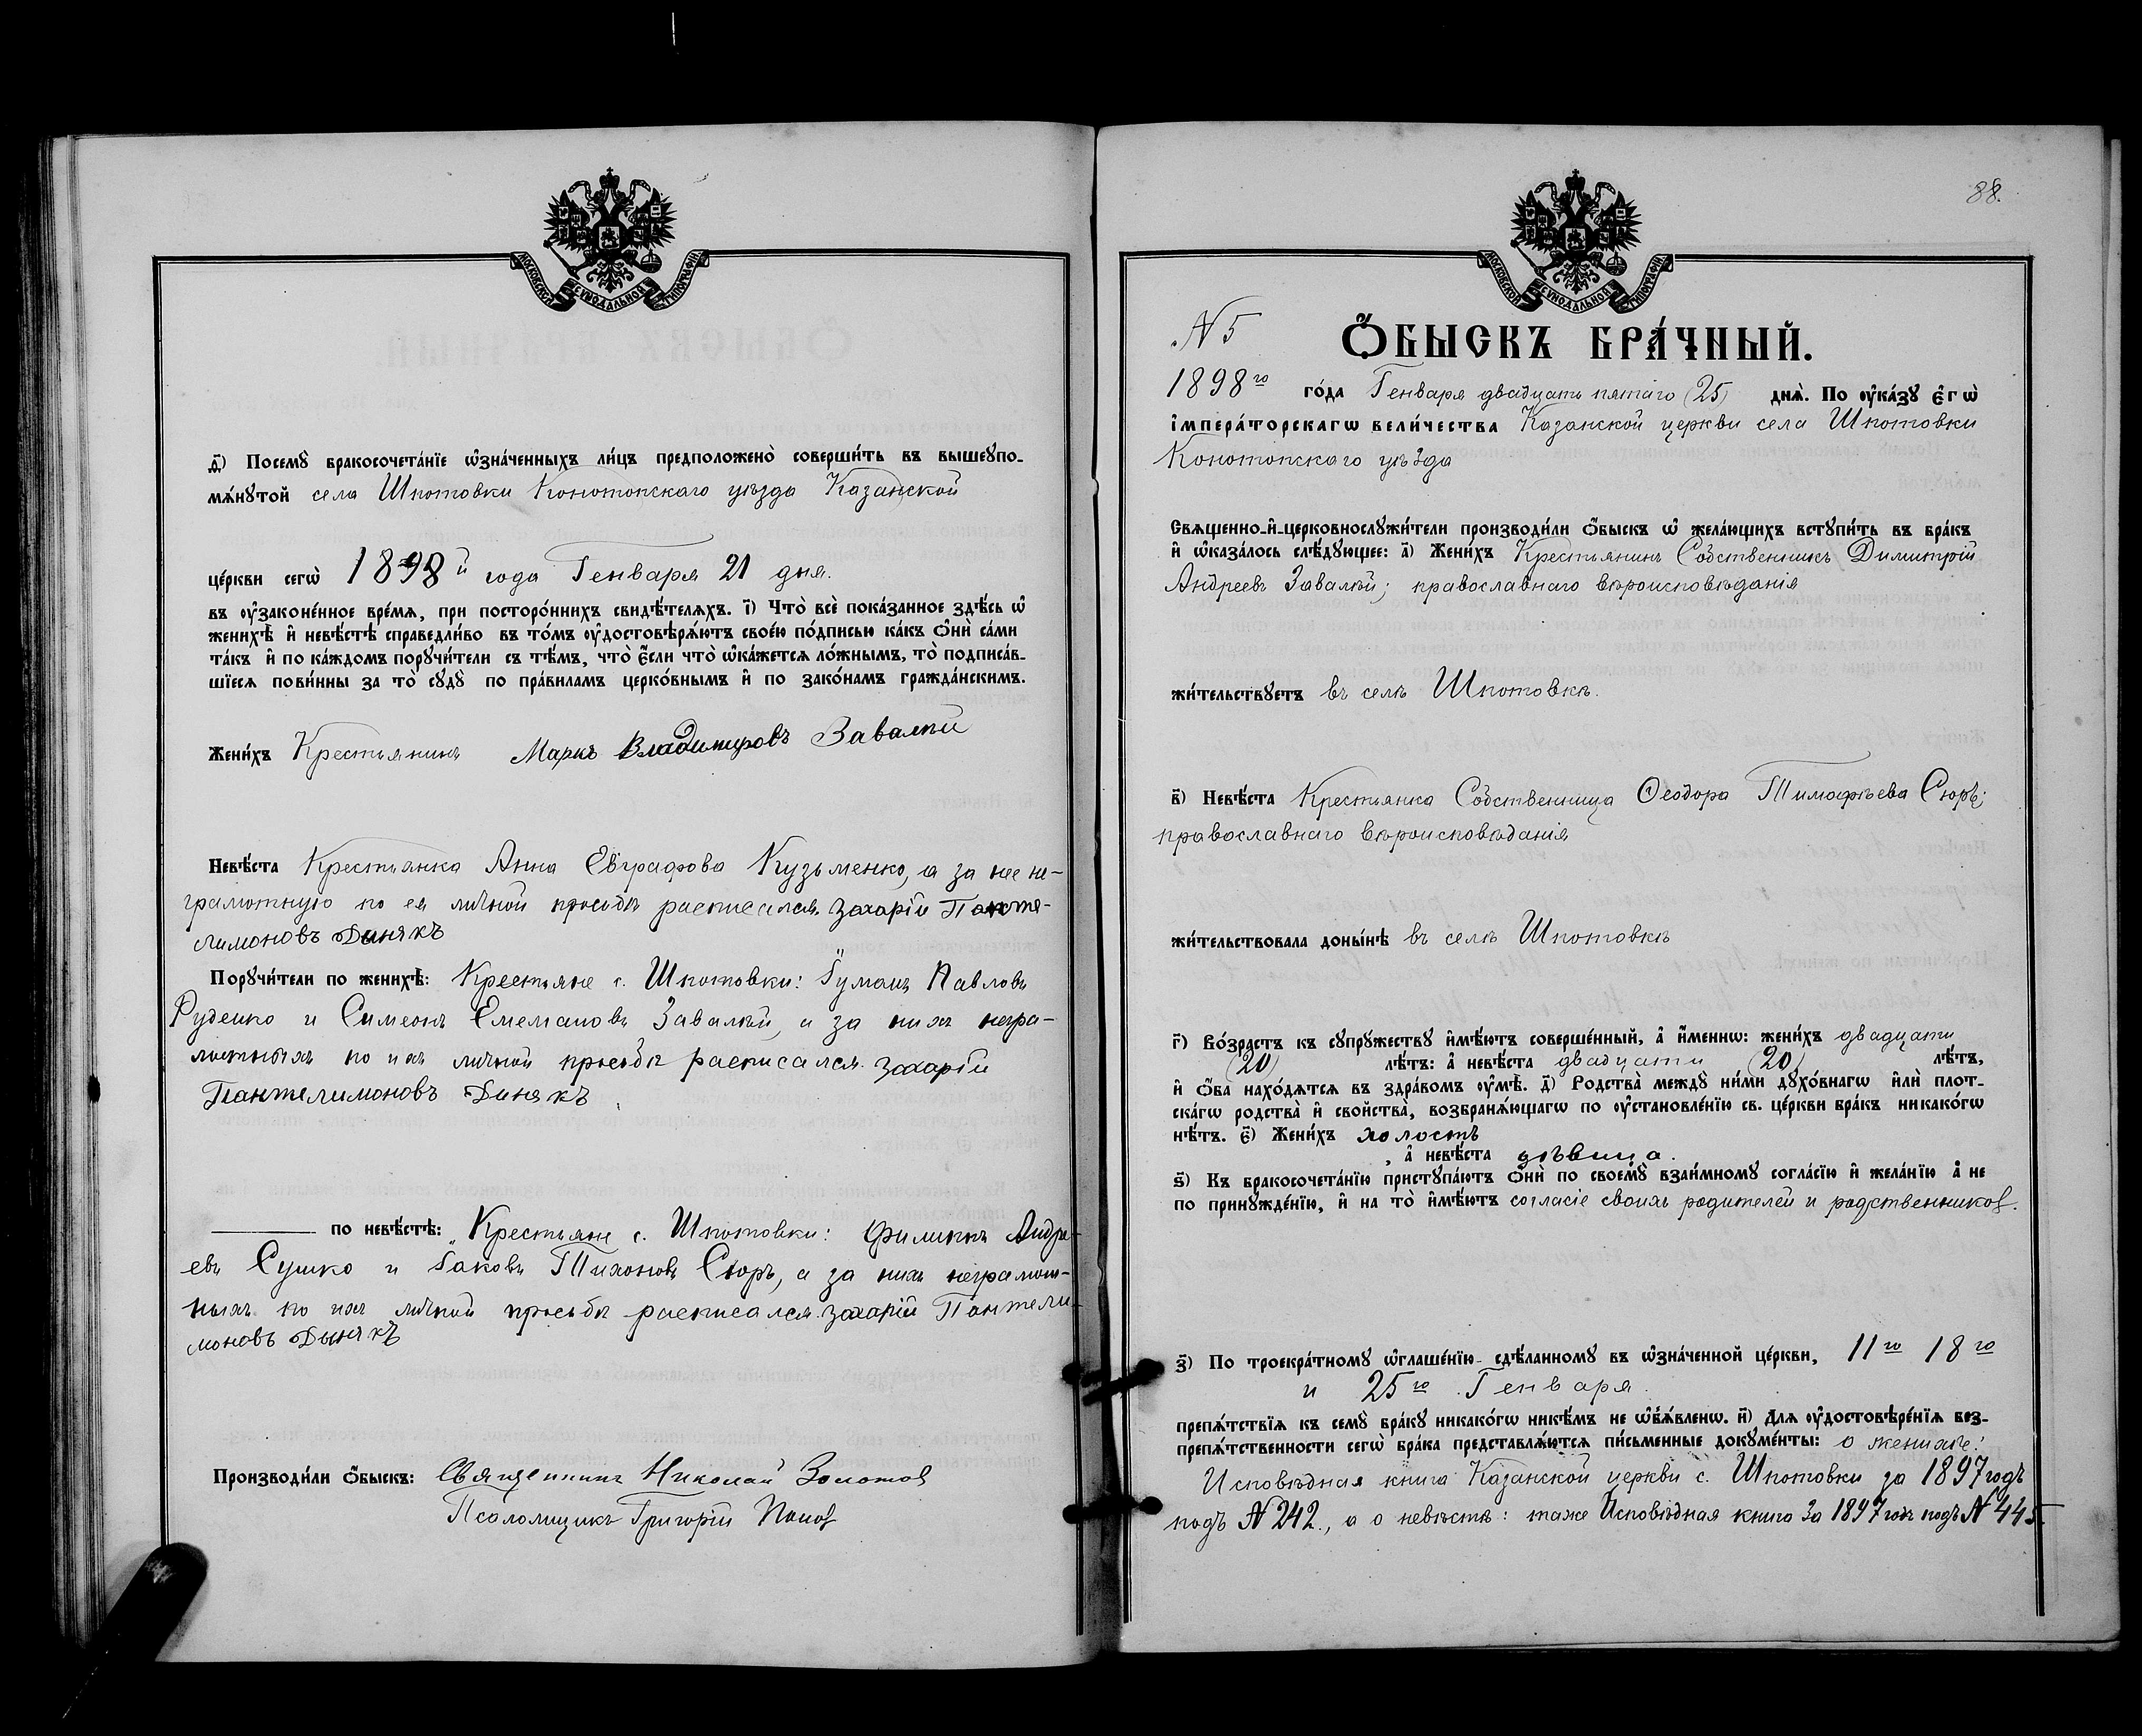 МОСКОВСКОЙ СѴНОДАЛЬНОЙ ТИПОГРАФІИ
д҃) Посемꙋ̀ бракосочета́нїе ѡ҆зна́ченныхъ ли́цъ предположено̀ соверши́ть въ вышеꙋпо-
мѧ́нꙋтой села Шпотовки Конотопскаго уѣзда Казанской
це́ркви сегѡ̀ 1898й года Генваря 21 дня.
въ ᲂу҆законе́нное вре́мѧ, при посторо́ннихъ свидѣ́телѧхъ. і҃) Что̀ всѐ пока́занное здѣ́сь ѡ҆
женихѣ̀ и҆ невѣ́стѣ справедли́во въ то́мъ ᲂу҆достовѣрѧ́ютъ свое́ю по́дписью ка́къ ѻ҆нѝ са́ми
та́къ и҆ по ка́ждомъ порꙋчи́тели съ тѣ́мъ, что̀ є҆́сли что̀ ѡ҆ка́жетсѧ ло́жнымъ, то̀ подписа́в-
шїесѧ пови́нны за то̀ сꙋдꙋ̀ по пра́виламъ церко́внымъ и҆ по зако́намъ гражда́нскимъ.
Жени́хъ Крестьянинъ Маркъ Владимировъ Завалій
Невѣ́ста Крестьянка Анна Евграфова Кузьменко, а за нее не-
грамотную по ея личной просьбѣ расписался. Захарій Панте-
лимоновъ Дынякъ
Порꙋчи́тели по женихѣ̀: Крестьяне с. Шпотовки: Гуманъ Павловъ
Руденко и Симеонъ Емемановъ Завалѣй, а за нихъ негра-
мотныхъ по ихъ личной просьбѣ расписался. Захарій
Пантелимоновъ Дынякъ
по невѣ́стѣ: Крестьяне с. Шпотовки: Филиппъ Андре-
евъ Сушко и Іаковъ Тихоновъ Сюръ, а за нихъ неграмот-
ныхъ по ихъ личной просьбѣ расписался. Захарій Пантели-
моновъ Дынякъ
Производи́ли ѻ҆́быскъ: Священникъ Николай Золотов
Псаломщикъ Григорій Попов
88.
МОСКОВСКОЙ СѴНОДАЛЬНОЙ ТИПОГРАФІИ
N 5
Ѻ҆́БЫСКЪ БРА́ЧНЫЙ.
1898го го́да Генваря двадцать пятаго (25) днѧ̀. По ᲂу҆ка́зꙋ є҆гѡ̀
і҆мпера́торскагѡ вели́чества Казанской церкви села Шпотовки
Конотопскаго уѣзда
Свѧщенно-и҆-церковнослꙋжи́тели производи́ли ѻ҆́быскъ ѡ҆ жела́ющихъ встꙋпи́ть въ бра́къ
и҆ ѡ҆каза́лось слѣ́дꙋющее: а҃) Жени́хъ Крестьянинъ Собственникъ Димитрій
Андреевъ Завалѣй; православнаго вѣроисповѣданія
жи́тельствꙋетъ въ селѣ Шпотовкѣ.
в҃) Невѣ́ста Крестьянка Собственница Ѳеодора Тимофѣева Сюръ;
православнаго вѣроисповѣданія
жи́тельствовала доны́нѣ въ селѣ Шпотовкѣ
г҃) Во́зрастъ къ сꙋпрꙋ́жествꙋ и҆мѣ́ютъ соверше́нный, а҆ и҆́меннѡ: жени́хъ двадцати
(20) лѣ́тъ: а҆ невѣ́ста двадцати (20) лѣ́тъ,
и҆ ѻ҆́ба нахо́дѧтсѧ въ здра́вомъ ᲂу҆мѣ̀. д҃) Родства̀ междꙋ̀ ни́ми дꙋхо́внагѡ и҆лѝ плот-
ска́гѡ родства̀ и҆ свойства̀, возбранѧ́ющагѡ по ᲂу҆становле́нїю св. це́ркви бра́къ никако́гѡ
нѣ́тъ. є҃) Жени́хъ холостъ
, а҆ невѣ́ста дѣвица.
ѕ҃) Къ бракосочета́нїю пристꙋпа́ютъ ѻ҆нѝ по своемꙋ̀ взаи́мномꙋ согла́сїю и҆ жела́нїю а҆ не
по принꙋжде́нїю, и҆ на то̀ и҆мѣ́ютъ согласіе своихъ родителей и родственников.
з҃) По троекра́тномꙋ ѡ҆глаше́нїю сдѣ́ланномꙋ въ ѡ҆зна́ченной це́ркви, 11го 18го
и 25го Генваря.
препѧ́тствїѧ къ семꙋ̀ бра́кꙋ никако́гѡ никѣ́мъ не ѡ҆б̾ѧ́вленѡ. и҃) Длѧ ᲂу҆достовѣре́нїѧ без-
препѧ́тственности сегѡ̀ бра́ка представлѧ́ютсѧ пи́сьменные докꙋме́нты: о женихѣ:
Исповѣдная книга Казанской церкви с. Шпотовки за 1897 годъ
подъ N 242., а о невѣстѣ: таже Исповѣдная книга за 1897 годъ подъ N 445.